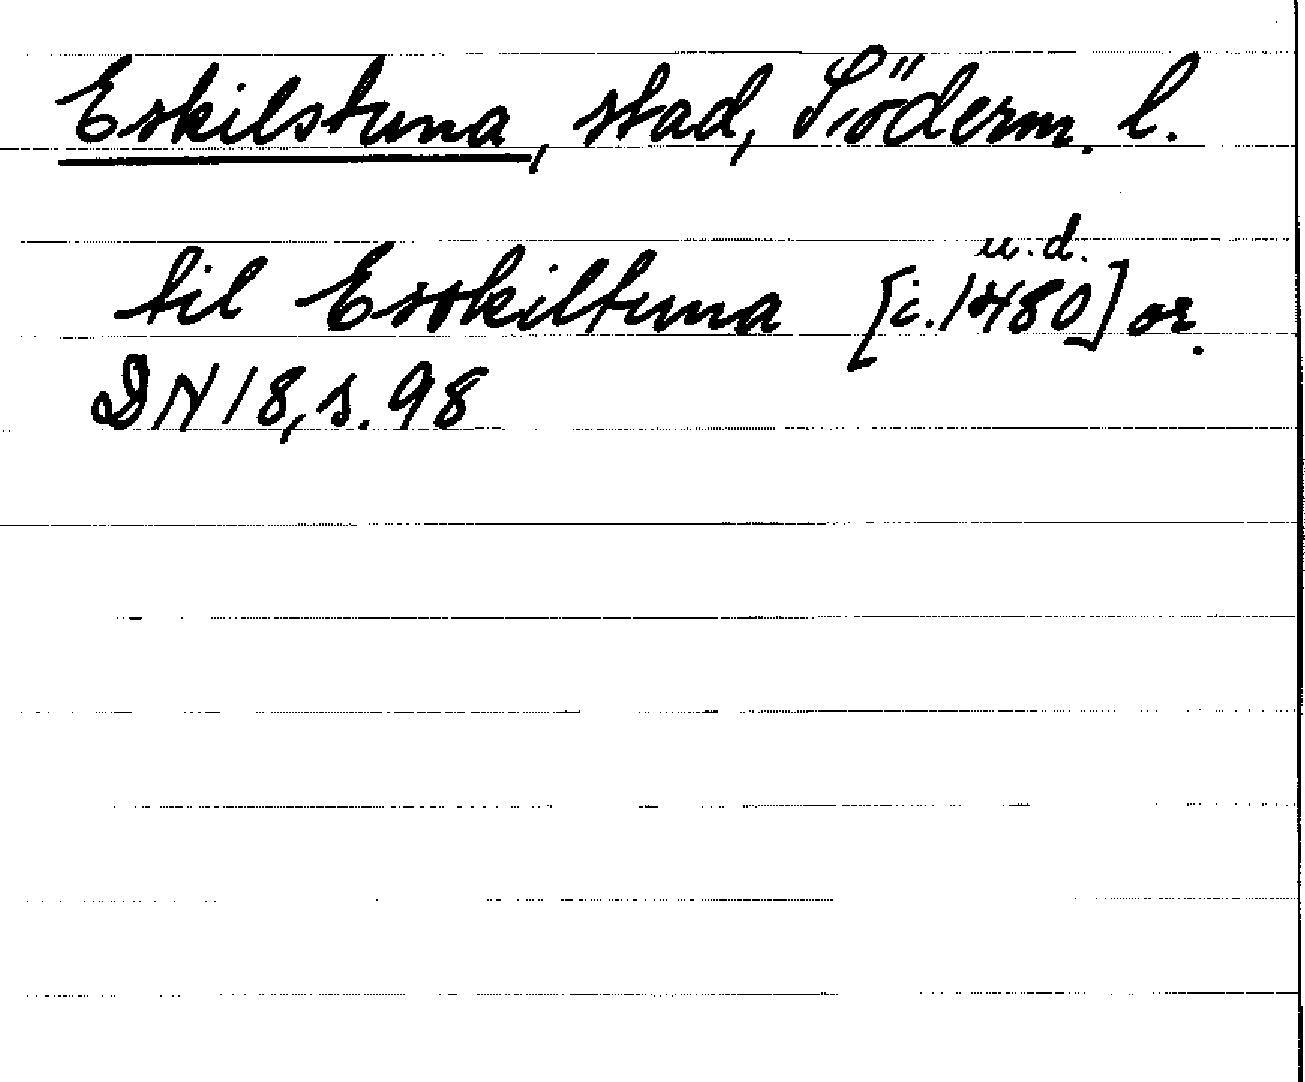 Eskilstuna, stad, Söderm. l.
u.d.
til Esskiltuna [c.1480] or.
DN 18, s. 98